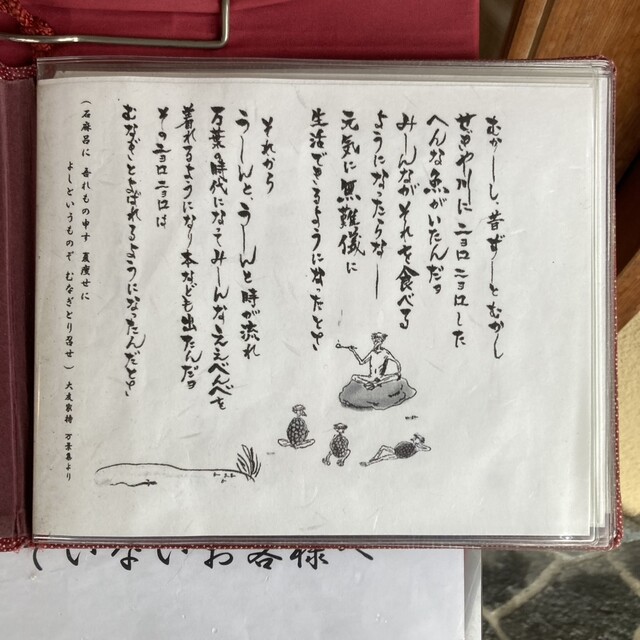 むかーし、昔ずーとむかし
せきや川にニョロニョロした
へんな魚がいたんだョ
みーんながそれを食べる
ようになったらなー
元気に無難儀に
生活できるようになったとさ
それから
うーんと、うーんと時が流れ
万葉の時代になってみーんなええべんべを
着れるようになり本なども出たんだョ
そのニョロニョロは
むなぎとよばれるようになったんだとさ
(石麻呂に 吾れもの申す 夏痩せに
よしというものぞ むなぎとり召せ) 大友家持 万葉集より
ていないお客様へ